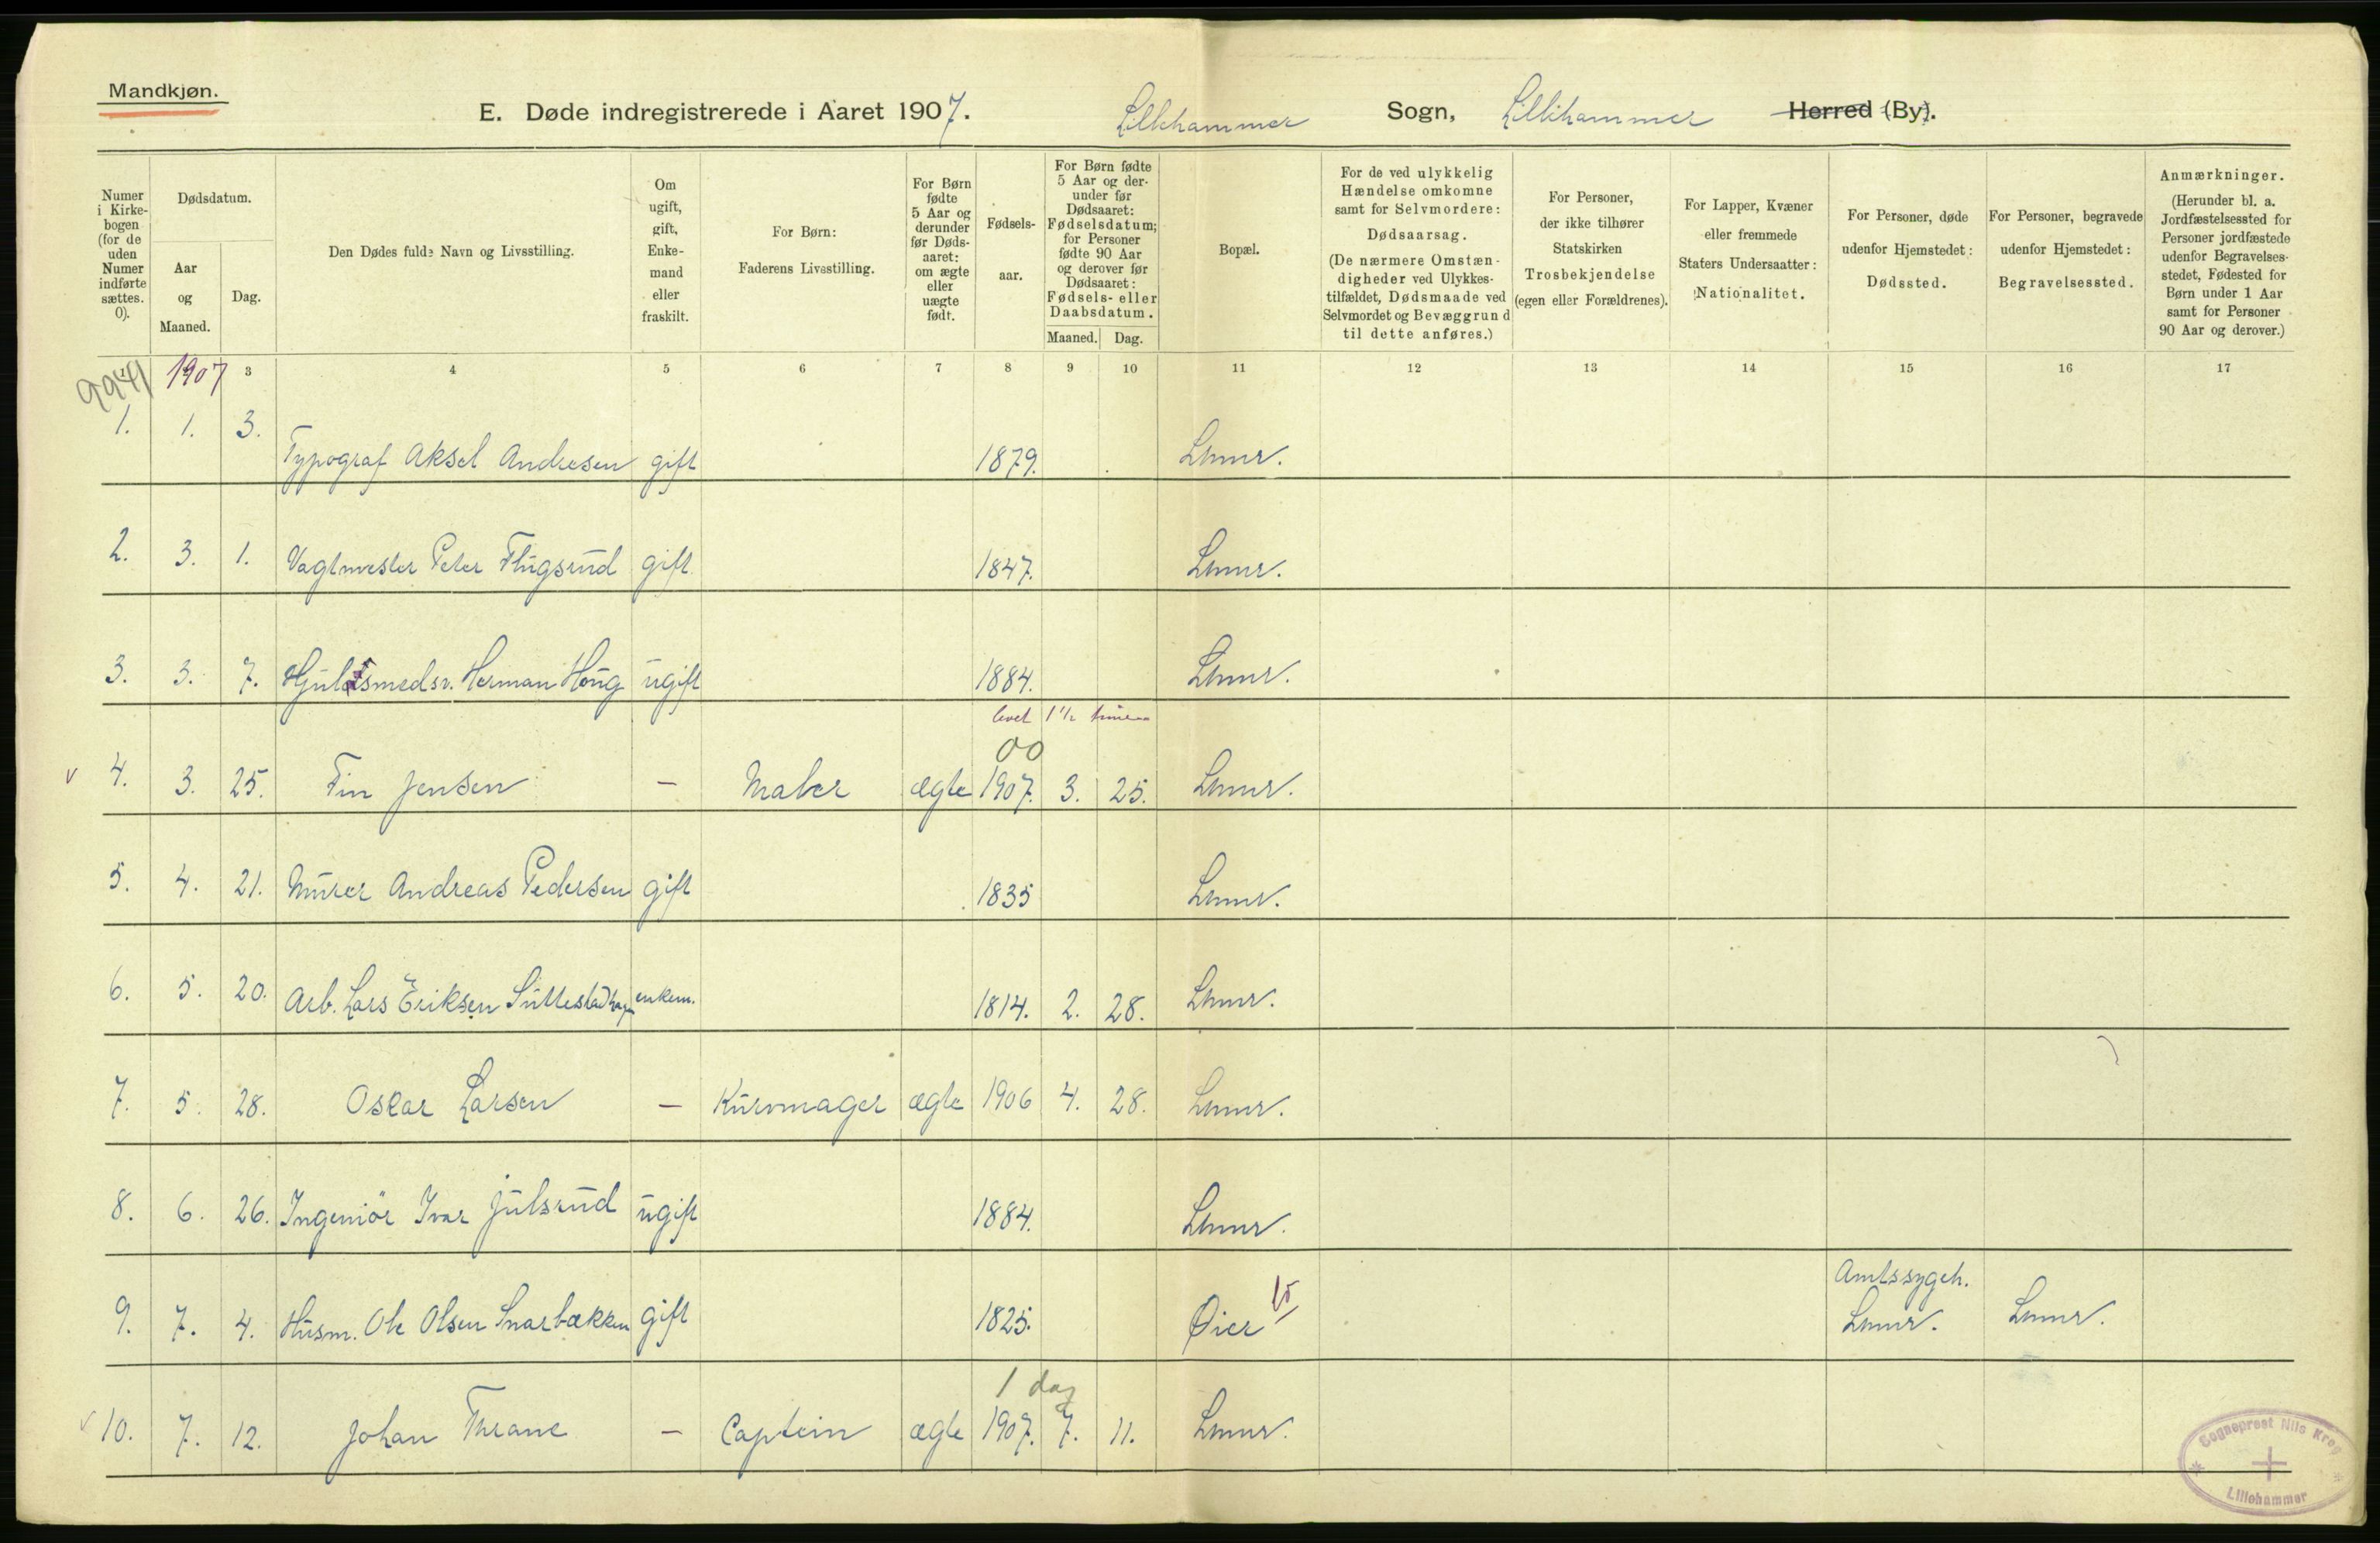 Mandkjøn.
E. Døde indregistrerede i Aaret 1907. Lillehammer Sogn, Lillehammer Herred (By).
Numer i Kirke-bogen (for de uden Numer indførte sættes. 0).
Dødsdatum.
Aar og Maaned.
Dag.
Den Dødes fulde Navn og Livsstilling.
Om ugift, gift, Enke-mand eller fraskilt.
For Børn: Faderens Livsstilling.
For Børn fødte 5 Aar og derunder før Døds-aaret: om ægte eller uægte født.
Fødsels-aar.
For Børn fødte 5 Aar og der-under før Dødsaaret: Fødselsdatum; for Personer fødte 90 Aar og derover før Dødsaaret: Fødsels- eller Daabsdatum.
Maaned. Dag.
Bopæl.
For de ved ulykkelig Hændelse omkomne samt for Selvmordere: Dødsaarsag. (De nærmere Omstæn-digheder ved Ulykkes-tilfældet, Dødsmaade ved Selvmordet og Bevæggrund til dette anføres.)
For Personer, der ikke tilhører Statskirken Trosbekjendelse (egen eller Forældrenes).
For Lapper, Kvæner eller fremmede Staters Undersaatter: Nationalitet.
For Personer, døde udenfor Hjemstedet: Dødssted.
For Personer, begravede udenfor Hjemstedet: Begravelsessted.
Anmærkninger. (Herunder bl. a. Jordfæstelsessted for Personer jordfæstede udenfor Begravelses-stedet, Fødested for Børn under 1 Aar samt for Personer 90 Aar og derover.)
1907 3 4 5 6 7 8 9 10 11 12 13 14 15 16 17
1. 1. 3. Typograf Aksel Andresen gift 1879. Lhmr.
2. 3. 1. Vagtmester Peter Flugsrud gift 1847. Lhmr.
3. 3. 7. Hermann Houg ugift 1884. Lhmr.
levet 1 1/2 time
00
4. 3. 25. Fin Jensen — Maler ægte 1907. 3. 25. Lhmr.
5. 4. 21. Murer Andreas Pedersen gift 1835 Lhmr.
6. 5. 20. Arb. Lars Eriksen enkem. 1814. 2. 28. Lhmr.
7. 5. 28. Oskar Larsen — Kurvmager ægte 1906 4. 28. Lhmr.
8. 6. 26. Ingeniör Ivar Julsrud ugift 1884. Lhmr.
Amtssygeh.
9. 7. 4. Husm. Ole Olsen Snarbækken gift 1825. Øier Lhmr. Lhmr.
1 dag
10. 7. 12. Johan Thrane — Captein ægte 1907. 7. 11. Lhmr.
Sogneprest Nils Krog
Lillehammer